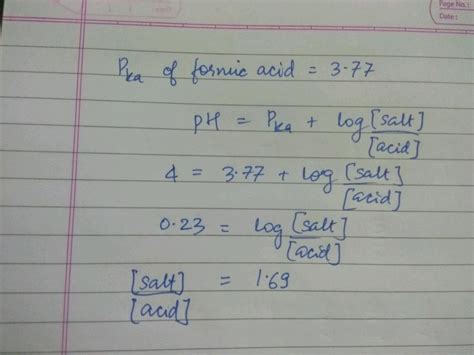 Page No.:
Date:
Pka of formic acid = 3.77
pH = Pka + log [salt]/[acid]
4 = 3.77 + log [salt]/[acid]
0.23 = log [salt]/[acid]
[salt]/[acid] = 1.69